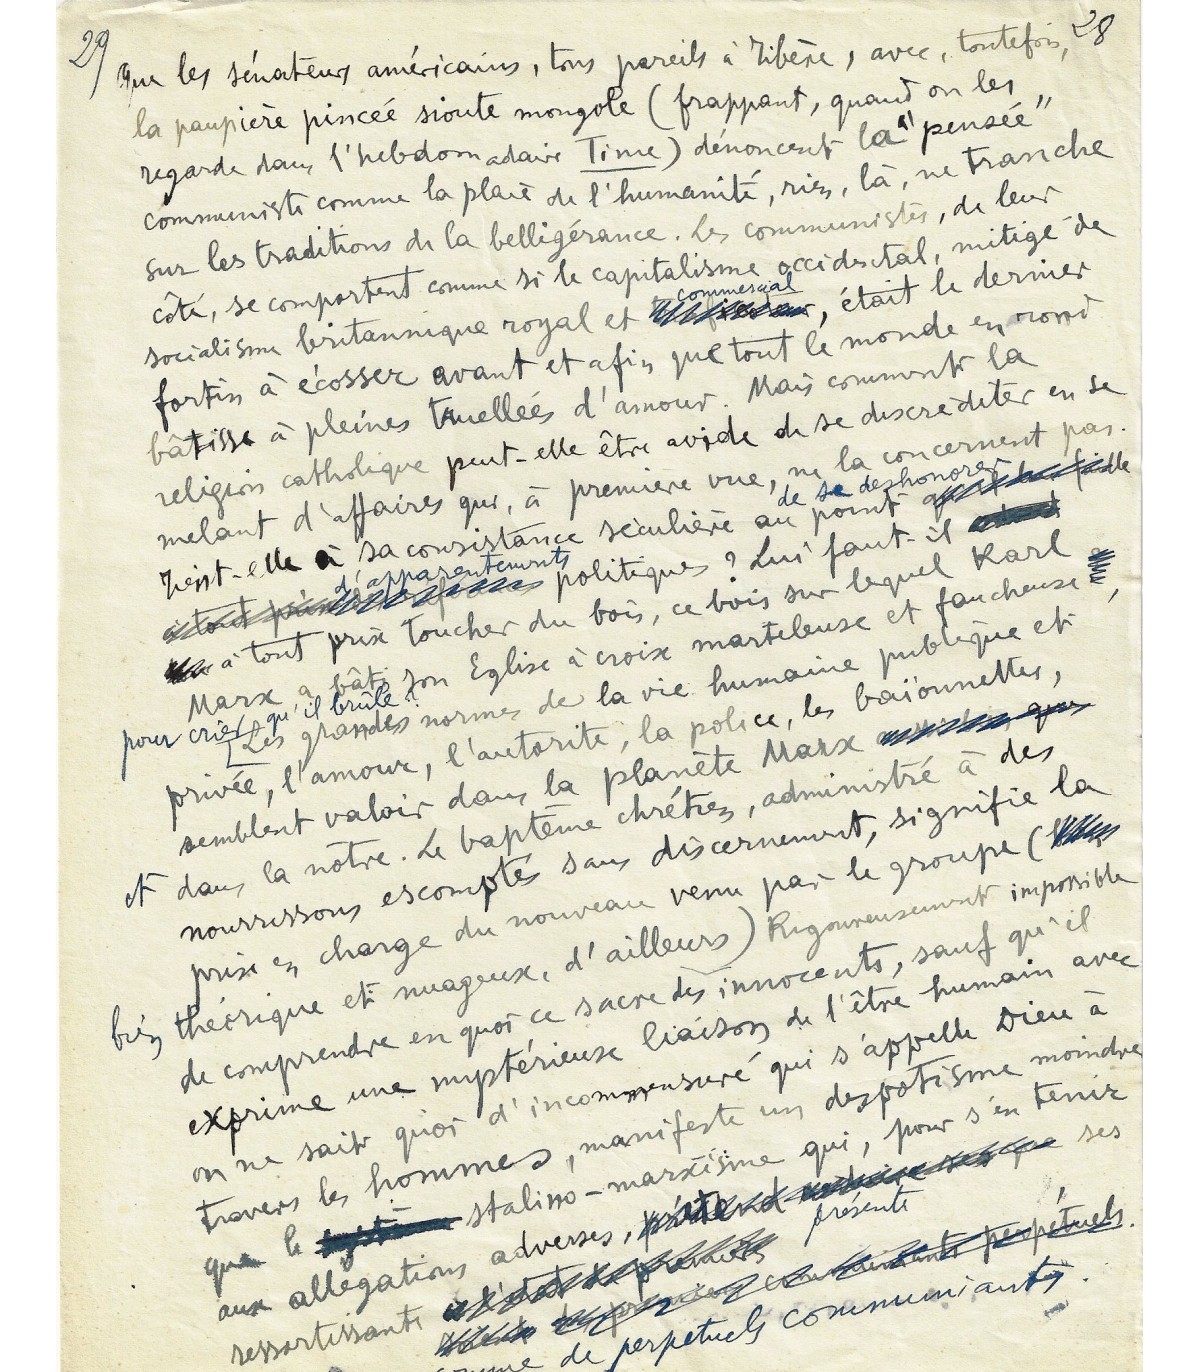 29 28
Que les sénateurs américains, tous pareils à Tibère, avec, toutefois,
la paupière pincée sioute mongole (frappant, quand on les
regarde dans l'hebdomadaire Time) dénoncent la "pensée"
communiste comme la plaie de l'humanité, rien, là, ne tranche
sur les traditions de la belligérance. Les communistes, de leur
côté, se comportent comme si le capitalisme occidental, mitigé de
commercial
socialisme britannique royal et , était le dernier
fortin à écosser avant et afin que tout le monde en rond
bâtisse à pleines truellées d'amour. Mais comment la
religion catholique peut-elle être avide de se discréditer en se
mêlant d'affaires qui, à première vue, ne la concernent pas.
de se deshonorer
Tient-elle à sa consistance séculière au point
d'apparentements
politiques? Lui faut-il
à tout prix toucher du bois, ce bois sur lequel Karl
Marx a bâti son Eglise à croix marteleuse et faucheuse,
pour crier qu'il brûle?
[Les grandes normes de la vie humaine publique et
privée, l'amour, l'autorité, la police, les baïonnettes,
semblent valoir dans la planète Marx
et dans la nôtre. Le baptême chrétien, administré à des
nourrissons escomptés sans discernement, signifie la
prise en charge du nouveau venu par le groupe (
bien théorique et nuageux, d'ailleurs) Rigoureusement impossible
de comprendre en quoi ce sacre des innocents, sauf qu'il
exprime une mystérieuse liaison de l'être humain avec
on ne sait quoi d'incommensuré qui s'appelle Dieu à
travers les hommes, manifeste un despotisme moindre
que le stalino-marxisme qui, pour s'en tenir
aux allégations adverses, ses
présente
ressortissants
comme de perpetuels communiants.